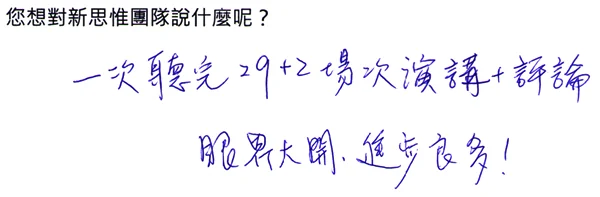 您想對新思惟團隊說什麼呢？
一次聽完29+2場次演講+評論
眼界大開、進步良多！